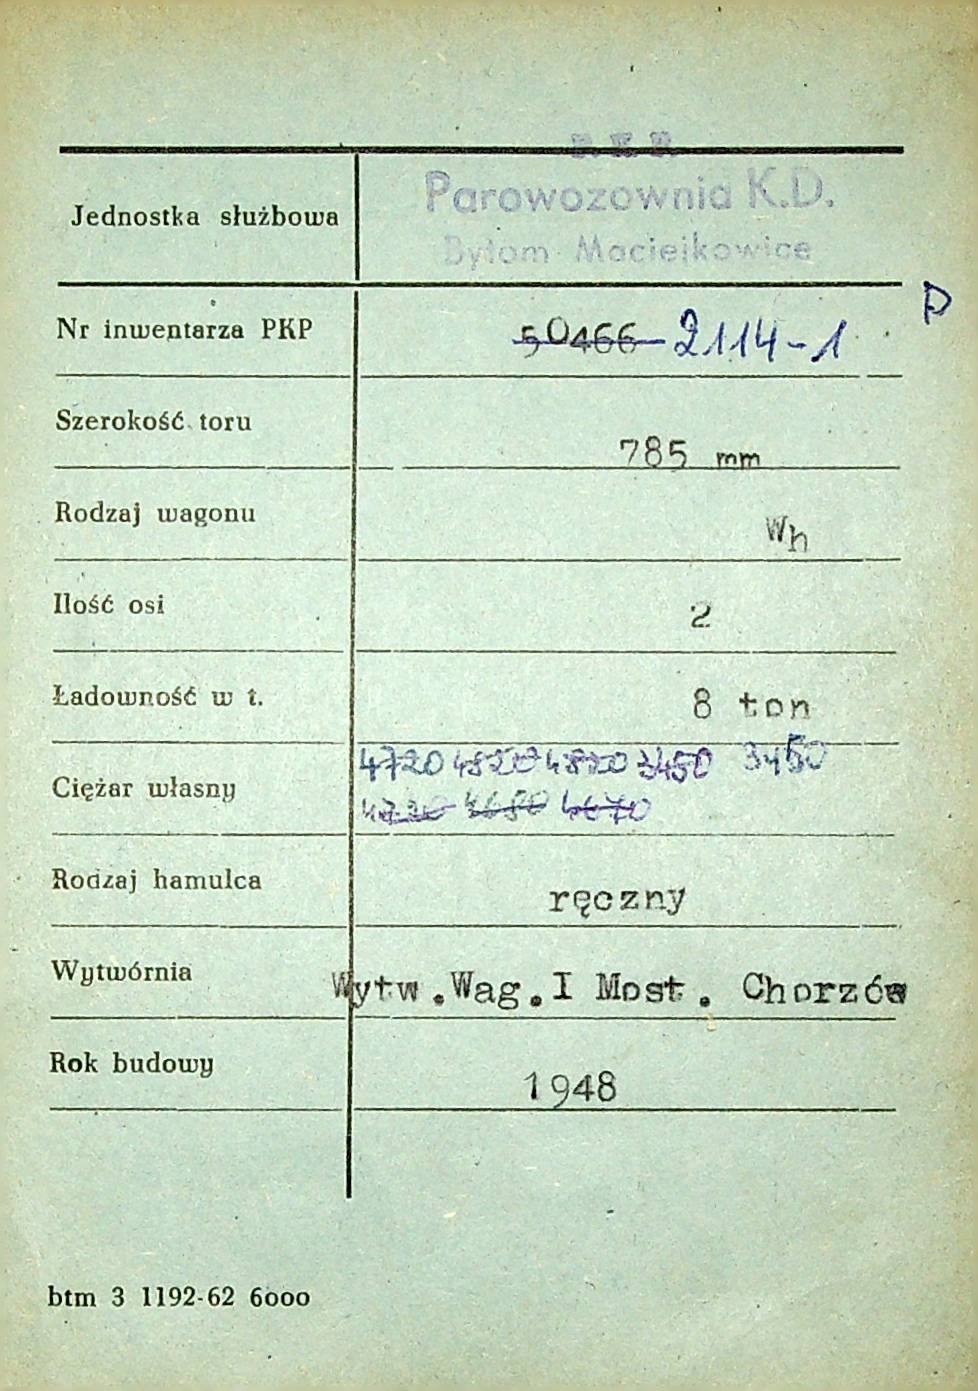 P. K. P.
Parowozownia K.D.
Jednostka służbowa
Bytom Maciejkowice
P
Nr inwentarza PKP 50466 2114-1
Szerokość toru
785 mm
Rodzaj wagonu
Wh
Ilość osi
2
Ładowność w t. 8 ton
4720 4820 4820 3450 3450
Ciężar własny
4650 4670
Rodzaj hamulca
ręczny
Wytwórnia
Wytw.Wag.I Most. Chorzów
Rok budowy
1948
btm 3 1192-62 6000